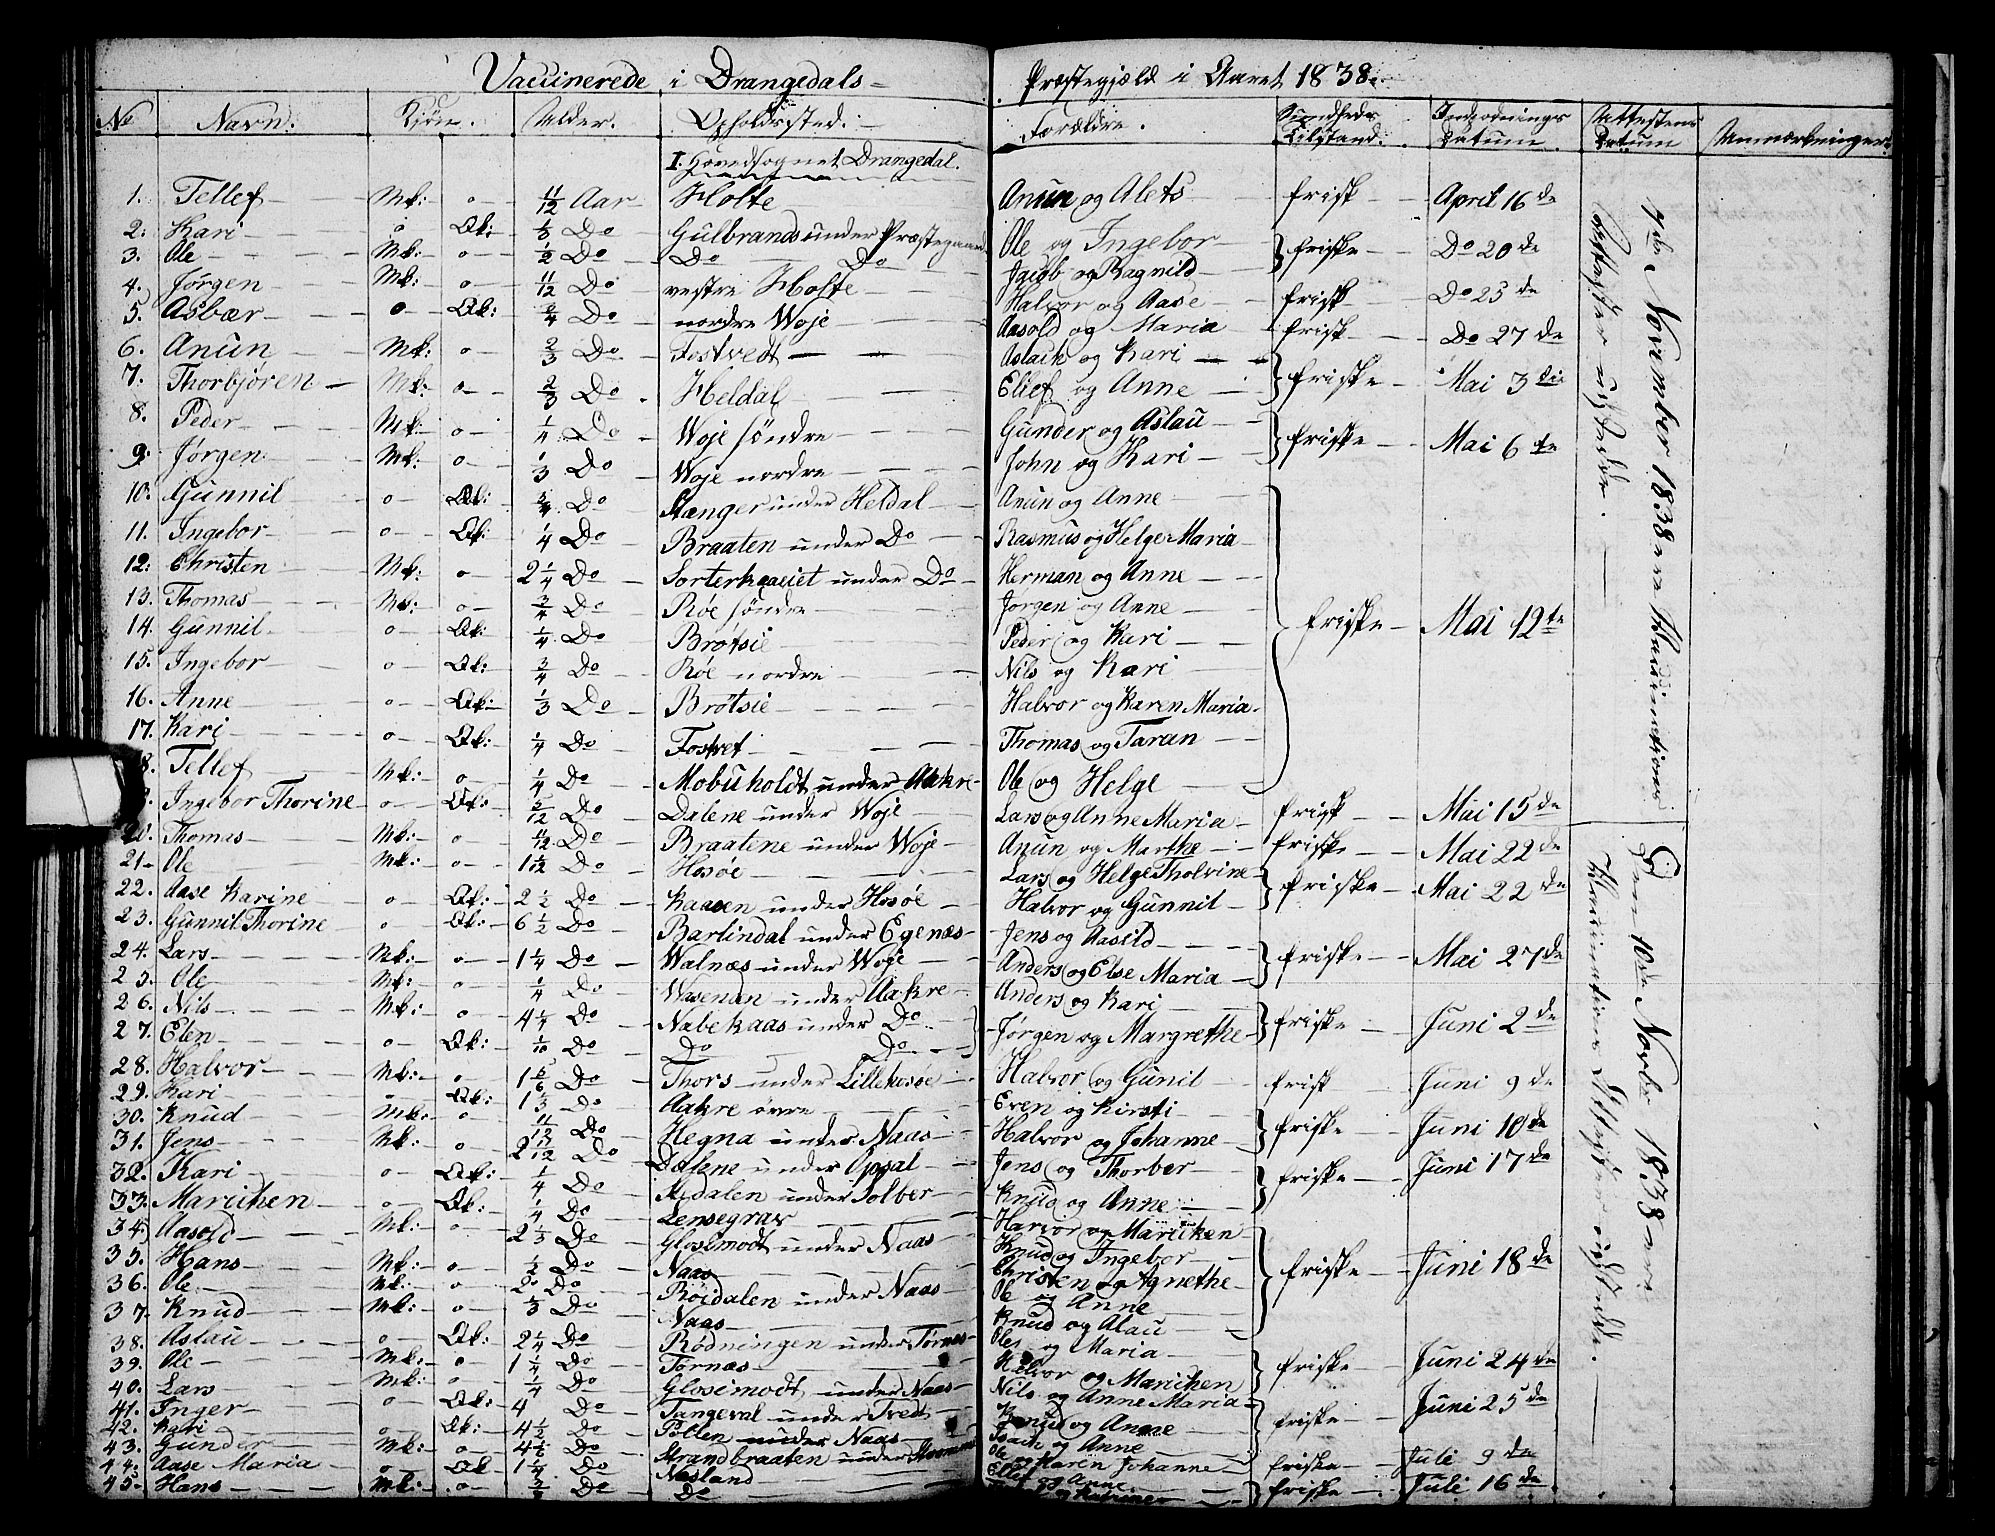 Vaccinerede i Drangedals Præstegjæld i Aaret 1838.
No Navn. Kjøn. Alder. Opholdssted. Forældre. Sundheds Tilstand. Indpodnings Datum. Attestens Datum Anmærkninger.
I. Hovedsognet Drangedal.
1. Tellef Mk: o 11/12 Aar Holte Anun og Alets frisk April 16de
2. Kari o Qk: 1/3 Do Gulbrands under Præstegaard Ole og Ingebor friske Do 20de
3. Ole Mk: o 1/2 Do Do Do Jacob og Ragnild
4. Jørgen Mk: o 11/12 Do vestre Holte Halvor og Aase frisk Do 25de
5. Asbær o Qk: 3/4 Do nordre Woje Aasold og Maria frisk Do 27de
6. Anun Mk: o 2/3 Do Fostvedt Aslack og Kari friske Mai 3die
7. Thorbjøren Mk: o 2/3 Do Heldal Ellef og Anne
8. Peder Mk: o 1/4 Do Woje søndre Gunder og Aslau friske Mai 6te
9. Jørgen Mk: o 1/3 Do Woje nordre John og Kari
10. Gunnil o Qk: 3/4 Do Stanger under Heldal Anun og Anne
11. Ingebor o Qk: 1/4 Do Braaten under Do Rasmus og Helge Maria
12. Christen Mk: o 2 1/4 Do under Do Herman og Anne
13. Thomas Mk: o 3/4 Do Røe søndre Jørgen og Anne friske Mai 12te
14. Gunnil o Qk: 1/4 Do Brøtsie Peder og Kari
15. Ingebor o Qk: 3/4 Do Røe nordre Nils og Kari
16. Anne o Qk: 1/3 Do Brøtsie Halvor og Karen Maria
17. Kari o Qk: 1/4 Do Fostvet Thomas og Taran
18. Tellef Mk: o 1/4 Do Mobuholdt under Aakre Ole og Helge
Ingebor Thorine o Qk: 5/12 Do Dalene under Woje Lars og Anne Maria frisk Mai 15de
20. Thomas Mk: o 11/12 Do Braatene under Woje Anun og Marthe friske Mai 22de
21. Ole Mk: o 1 Do Hosøe Lars og Helge Tholvine friske Mai 22de
22. Aase Karine o Qk: 2 1/2 Do Kaasen under Hosøe Halvor og Gunnil
23. Gunnil Thorine o Qk: 6 1/2 Do Barlindal under Egenæs Jens og Aasild friske Mai 27de
24. Lars Mk: o 1 1/4 Do Walnæs under Woje Anders og Else Maria
25. Ole Mk: o 1/4 Do under Aakre Anders og Kari friske Juni 2de
26. Nils Mk: o 4 1/4 Do Nabekaas under Do Jørgen og Margrethe
27. Elen o Qk: 1/10 Do Do Do
28. Halvor Mk: o 1 5/6 Do Thors under Lillehosøe Halvor og Gunil frisk Juni 9de
29. Kari o Qk: 1 1/3 Do Aakre øvre Even og Kirsti friske Juni 10de
30. Knud Mk: o 11/12 Do Hegna under Naas Halvor og Johanne
31. Jens Mk: o 2 Do Dalene under Opsal Jens og Thorber friske Juni 17de
32. Kari o Qk: 1/4 Do Stidalen under Tolber Knud og Anne
33. Maricken o Qk: 1/4 Do Lensegrav Harvor og Maricken
34. Aasold Mk: o 2 1/3 Do Glosimodt under Naas Knud og Ingebor friske Juni 18de
35. Hans Mk: o 1/2 Do Naas Christen og Agnethe
36. Ole Mk: o 2 Do Røidalen under Naas Ole og Anne
37. Knud Mk: o 1/3 Do Naas Knud og Alau
38. Aslau o Qk: 2 1/4 Do Rødningen under Tørnæs Ole og Maria friske Juni 24de
39. Ole Mk: o 1 1/4 Do Tørnæs Halvor og Maricken
40. Lars Mk: o 1/4 Do Glosimodt under Naas Nils og Anne Maria friske Juni 25de
41. Inger o Qk: 4 Do Tangeval under Tvedt Knud og Anne
42. Kari o Qk: 4 1/2 Do under Naas Isach og Anne
43. Gunder Mk: o 4 1/2 Do Strandbraaten under Ole og Karen Johanne friske Juli 9de
44. Aase Maria o Qk 1 1/4 Do Næsland Ellef og Anne friske Juli 16de
45. Hans Mk: o Do Do
7de November 1838 ere Vaccinations Attester udstedde.
Den 10de Novbr 1838 ere Vaccinations Attester udstedde.